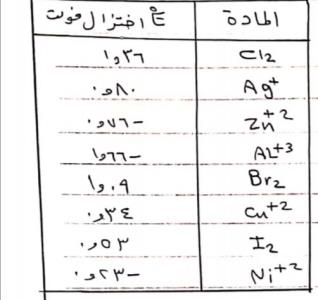 المادة E° اختزال فوت
Cl2 ١و٣٦
Ag+ ٠و٨٠
Zn+2 ٠و٧٦-
AL+3 ١و٦٦-
Br2 ١و٠٩
Cu+2 ٠و٣٤
I2 ٠و٥٣
Ni+2 ٠و٢٣-